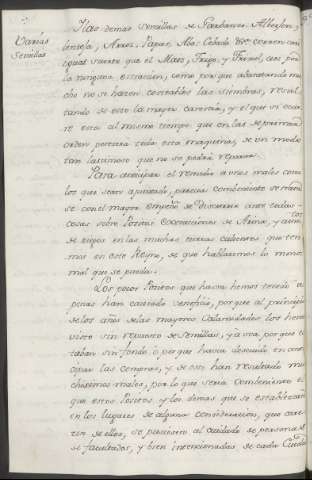 Varias
Semillas
Las demas Semillas de Garbanzo, Alberjon,
lenteja, Arroz, Papas, Abas Cebada &c. corren con
igual suerte que el Mais, Trigo, y Frijol, asi por
la ninguna extraccion, como por que abaratando mu
cho no se hacen costeables las siembras, resul
tando de esto la mayor carestia, y el que si ocur
re esto al mismo tiempo que en las de primera
orden perezca toda esta maquina, de un modo
tan lastimoso que no se podrá reparar.
Para anticipar el remedio á tales males como
los que stan apuntados, parecia combeniente se trata
se con el mayor empeño de Discurrir ante todas
cosas sobre Positos, Extracciones de Arina, y aun
de trigos en las muchas tierras calientes que tene
mos en este Reyno, de que hablaremos lo menos
mal que se pueda.
Los pocos Positos que hasta hemos tenido a
penas han causado beneficio, porque al principio
de los años de las mayores Calamidades los hemos
visto sin repuesto de Semillas, ya sea por que es
taban sin fondo, ó porque havia descuido en anti
cipar las compras, y de esto han resultado mu
chisimos males, por lo que sera Combeniente el
que estos Positos, y los demas que se establezcan
en los lugares de alguna consideracion, que care
cen de ellos, se pusiesen al cuidado de personas
facultadas, y bien intencionadas de cada Ciudad